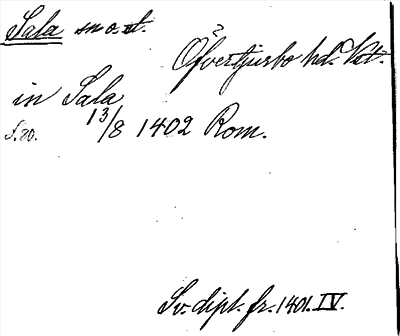 Sala sn o. st.
?
Öfvertjurbo hd. Vstm.
in Sala
S. 20. 13/8 1402 Rom.
Sv. dipl. fr. 1401. IV.